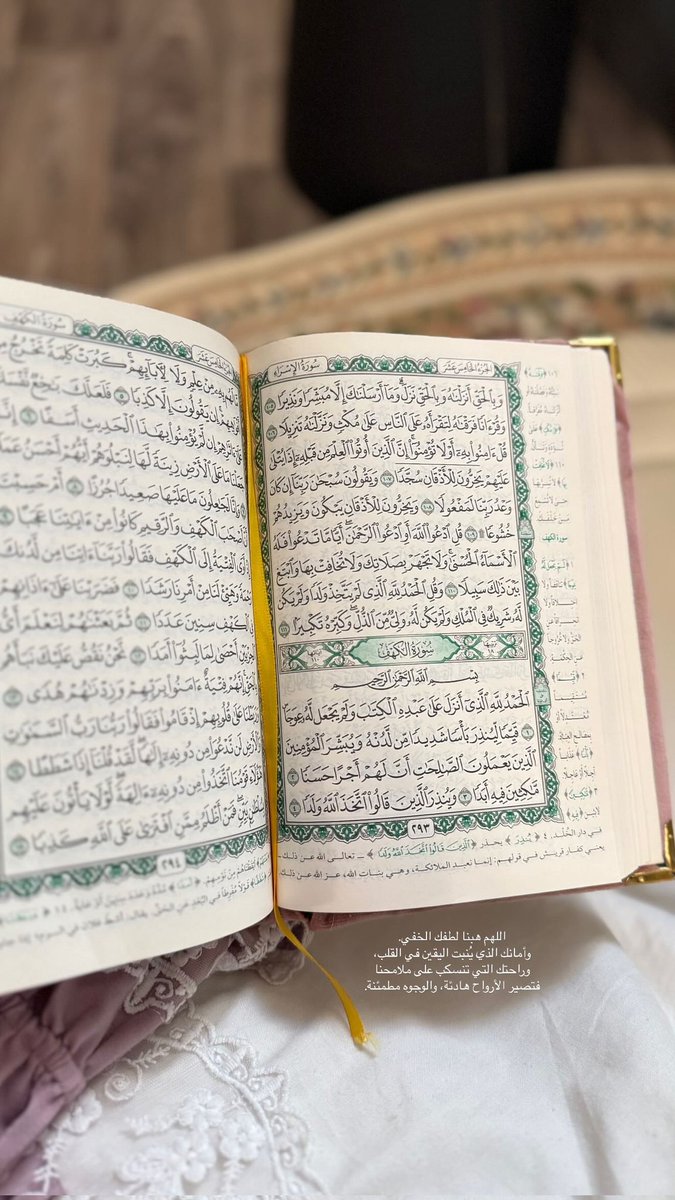 سُورَةُ الإِسْرَاءِ الجُزْءُ الخَامِسَ عَشَرَ
وَبِالْحَقِّ أَنزَلْنَٰهُ وَبِالْحَقِّ نَزَلَ ۗ وَمَا أَرْسَلْنَٰكَ إِلَّا مُبَشِّرًا وَنَذِيرًا ١٠٥
وَقُرْءَانًا فَرَقْنَٰهُ لِتَقْرَأَهُ عَلَى النَّاسِ عَلَىٰ مُكْثٍ وَنَزَّلْنَٰهُ تَنزِيلًا ١٠٦
قُلْ ءَامِنُوا بِهِ أَوْ لَا تُؤْمِنُوا ۚ إِنَّ الَّذِينَ أُوتُوا الْعِلْمَ مِن قَبْلِهِ إِذَا يُتْلَىٰ
عَلَيْهِمْ يَخِرُّونَ لِلْأَذْقَانِ سُجَّدًا ١٠٧ وَيَقُولُونَ سُبْحَٰنَ رَبِّنَا إِن كَانَ
وَعْدُ رَبِّنَا لَمَفْعُولًا ١٠٨ وَيَخِرُّونَ لِلْأَذْقَانِ يَبْكُونَ وَيَزِيدُهُمْ
خُشُوعًا ۩ ١٠٩ قُلِ ادْعُوا اللَّهَ أَوِ ادْعُوا الرَّحْمَٰنَ ۖ أَيًّا مَّا تَدْعُوا فَلَهُ
الْأَسْمَاءُ الْحُسْنَىٰ ۚ وَلَا تَجْهَرْ بِصَلَاتِكَ وَلَا تُخَافِتْ بِهَا وَابْتَغِ
بَيْنَ ذَٰلِكَ سَبِيلًا ١١٠ وَقُلِ الْحَمْدُ لِلَّهِ الَّذِي لَمْ يَتَّخِذْ وَلَدًا وَلَمْ يَكُن
لَّهُ شَرِيكٌ فِي الْمُلْكِ وَلَمْ يَكُن لَّهُ وَلِيٌّ مِّنَ الذُّلِّ ۖ وَكَبِّرْهُ تَكْبِيرًا ١١١
سُورَةُ الكَهْفِ
بِسْمِ اللَّهِ الرَّحْمَٰنِ الرَّحِيمِ
الْحَمْدُ لِلَّهِ الَّذِي أَنزَلَ عَلَىٰ عَبْدِهِ الْكِتَٰبَ وَلَمْ يَجْعَل لَّهُ عِوَجَا
١ قَيِّمًا لِّيُنذِرَ بَأْسًا شَدِيدًا مِّن لَّدُنْهُ وَيُبَشِّرَ الْمُؤْمِنِينَ
الَّذِينَ يَعْمَلُونَ الصَّٰلِحَٰتِ أَنَّ لَهُمْ أَجْرًا حَسَنًا
٢ مَّٰكِثِينَ فِيهِ أَبَدًا ٣ وَيُنذِرَ الَّذِينَ قَالُوا اتَّخَذَ اللَّهُ وَلَدًا ٤
٢٩٣
في دار الخُلد. ٤ ﴿وَيُنذِرَ﴾ يحذر ﴿الَّذِينَ قَالُوا اتَّخَذَ اللَّهُ وَلَدًا﴾ ـ تعالى الله عن ذلك ـ
يعني كفار قريش في قولهم: إنما نعبد الملائكة، وهي بنات الله، عز الله عن ذلك
سُورَةُ الكَهْفِ الخَامِسَ عَشَرَ
بِهِ مِنْ عِلْمٍ وَلَا لِءَابَائِهِمْ ۚ كَبُرَتْ كَلِمَةً تَخْرُجُ مِنْ
إِن يَقُولُونَ إِلَّا كَذِبًا ٥ فَلَعَلَّكَ بَٰخِعٌ نَّفْسَكَ
إِن لَّمْ يُؤْمِنُوا بِهَٰذَا الْحَدِيثِ أَسَفًا ٦ إِنَّا
مَا عَلَى الْأَرْضِ زِينَةً لَّهَا لِنَبْلُوَهُمْ أَيُّهُمْ أَحْسَنُ عَمَلًا
وَإِنَّا لَجَٰعِلُونَ مَا عَلَيْهَا صَعِيدًا جُرُزًا ٨ أَمْ حَسِبْتَ
أَنَّ أَصْحَٰبَ الْكَهْفِ وَالرَّقِيمِ كَانُوا مِنْ ءَايَٰتِنَا عَجَبًا ٩
أَوَى الْفِتْيَةُ إِلَى الْكَهْفِ فَقَالُوا رَبَّنَا ءَاتِنَا مِن لَّدُنكَ
رَحْمَةً وَهَيِّئْ لَنَا مِنْ أَمْرِنَا رَشَدًا ١٠ فَضَرَبْنَا عَلَىٰ ءَاذَانِهِمْ
فِي الْكَهْفِ سِنِينَ عَدَدًا ١١ ثُمَّ بَعَثْنَٰهُمْ لِنَعْلَمَ أَيُّ
الْحِزْبَيْنِ أَحْصَىٰ لِمَا لَبِثُوا أَمَدًا ١٢ نَّحْنُ نَقُصُّ عَلَيْكَ نَبَأَهُم
بِالْحَقِّ ۚ إِنَّهُمْ فِتْيَةٌ ءَامَنُوا بِرَبِّهِمْ وَزِدْنَٰهُمْ هُدًى ١٣
وَرَبَطْنَا عَلَىٰ قُلُوبِهِمْ إِذْ قَامُوا فَقَالُوا رَبُّنَا رَبُّ السَّمَٰوَٰتِ
وَالْأَرْضِ لَن نَّدْعُوَا مِن دُونِهِ إِلَٰهًا ۖ لَّقَدْ قُلْنَا إِذًا شَطَطًا ١٤
هَٰؤُلَاءِ قَوْمُنَا اتَّخَذُوا مِن دُونِهِ ءَالِهَةً ۖ لَّوْلَا يَأْتُونَ عَلَيْهِم
بِسُلْطَٰنٍ بَيِّنٍ ۖ فَمَنْ أَظْلَمُ مِمَّنِ افْتَرَىٰ عَلَى اللَّهِ كَذِبًا ١٥
٢٩٤
اللهم هبنا لطفك الخفي.
وأمانك الذي يُنبت اليقين في القلب،
وراحتك التي تنسكب على ملامحنا
فتصير الأرواح هادئة، والوجوه مطمئنة.